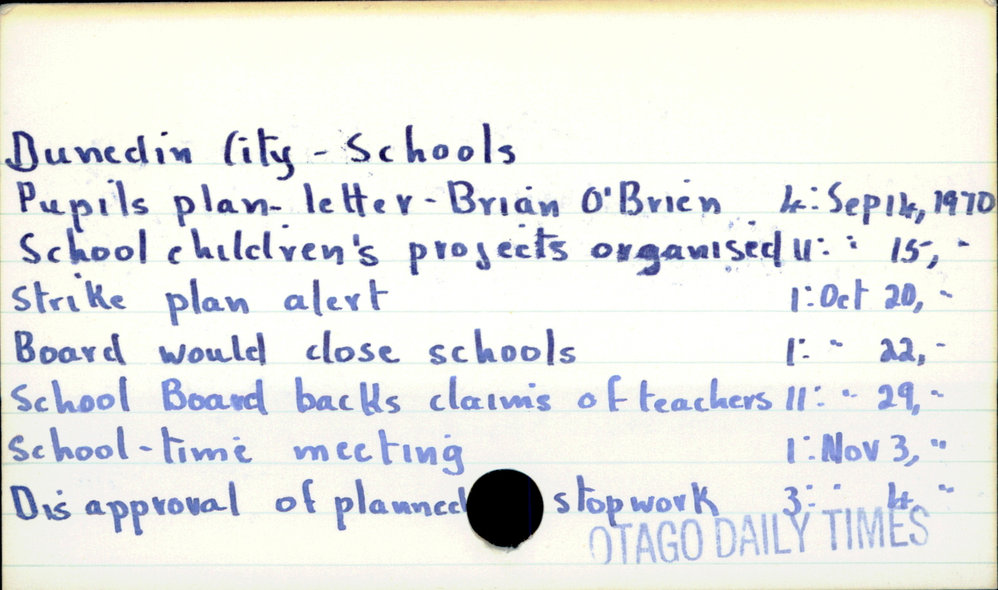 Dunedin City - Schools
Pupils plan - letter - Brian O'Brien 4: Sep 14, 1970
School children's projects organised 11: " 15, "
Strike plan alert 1: Oct 20, "
Board would close schools 1: " 22, "
School Board backs claims of teachers 11: " 29, "
School-time meeting 1: Nov 3, "
Disapproval of planned stopwork 3: " 4, "
OTAGO DAILY TIMES